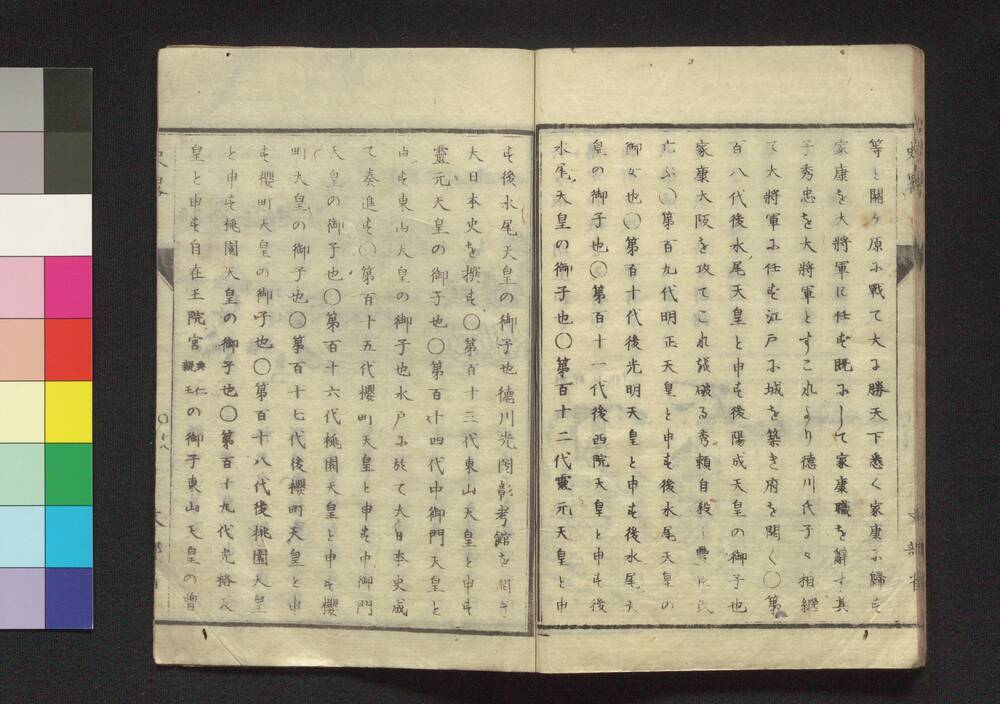 等と關ケ原に戰て大に勝天下悉く家康に歸す
家康を大將軍に任す既にして家康職を辭す其
子秀忠を大將軍とすこれより德川氏子々相繼
て大將軍に任す江戸に城を築き府を開く〇第
百八代後水尾天皇と申す後陽成天皇の御子也
家康大阪を攻てこれを破る秀頼自殺し豊臣氏
亡ふ〇第百九代明正天皇と申す後水尾天皇の
御女也〇第百十代後光明天皇と申す後水尾天
皇の御子也〇第百十一代後西院天皇と申す後
水尾天皇の御子也〇第百十二代靈元天皇と申
す後水尾天皇の御子也德川光圀彰考館を開き
大日本史を撰す〇第百十三代東山天皇と申す
靈元天皇の御子也〇第百十四代中御門天皇と
申す東山天皇の御子也水戸に於て大日本史成
て奏進す〇第百十五代櫻町天皇と申す中御門
天皇の御子也〇第百十六代桃園天皇と申す櫻
町天皇の御子也〇第百十七代後櫻町天皇と申
す櫻町天皇の御子也〇第百十八代後桃園天皇
と申す桃園天皇の御子也〇第百十九代光格天
皇と申す自在王院宮典仁親王の御子東山天皇の曾
史畧
〇十八